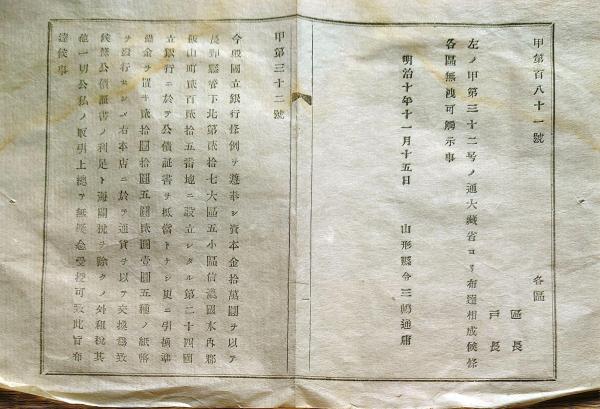 甲第百八十一號
各區
區長
戸長
左ノ甲第三十二号ノ通大藏省ヨリ布達相成候條
各區無洩可觸示事
明治十年十一月十五日
山形縣令三嶋通庸
甲第三十二號
今般國立銀行條例ヲ遵奉シ資本金拾萬圓ヲ以テ
長野縣管下北第貳拾七大區五小區信濃國水內郡
飯山町貳百貳拾五番地ニ設立シタル第二十四國
立銀行ニ於テ公債証書ヲ抵當トナシ更ニ引換準
備金ヲ置キ貳拾圓拾圓五圓貳圓壹圓五種ノ紙幣
ヲ發行セシメ右本店ニ於テ通貨ヲ以テ交換爲致
候條公債証書ノ利足ト海關税ヲ除クノ外租税其
他一切公私ノ取引上總テ無疑念受授可致此旨布
達候事